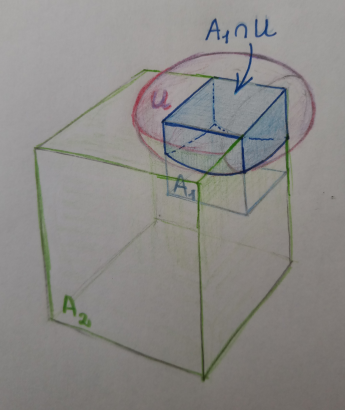 A₁∩U
U
A₁
A₂